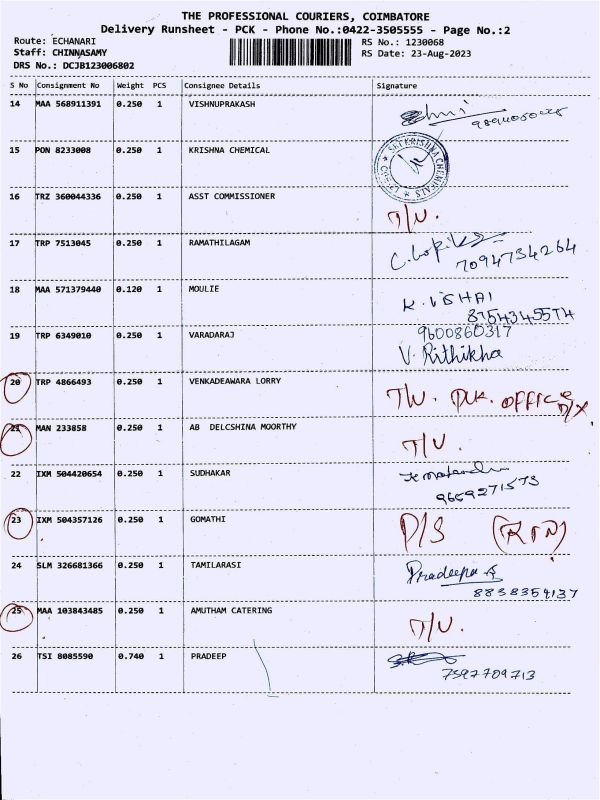 THE PROFESSIONAL COURIERS, COIMBATORE
Delivery Runsheet - PCK - Phone No.:0422-3505555 - Page No.:2
Route: ECHANARI RS No.: 1230068
Staff: CHINNASAMY RS Date: 23-Aug-2023
DRS No.: DCJB123006802
S No Consignment No Weight PCS Consignee Details Signature
14 MAA 568911391 0.250 1 VISHNUPRAKASH
15 PON 8233008 0.250 1 KRISHNA CHEMICAL SRI KRISHNA CHEMICALS
16 TRZ 360044336 0.250 1 ASST COMMISSIONER T/U.
17 TRP 7513045 0.250 1 RAMATHILAGAM 7094734264
18 MAA 571379440 0.120 1 MOULIE K. VISHAI
8754345574
19 TRP 6349010 0.250 1 VARADARAJ 9600860317
V. Rithikha
20 TRP 4866493 0.250 1 VENKADEAWARA LORRY T/U. OFFICE
21 MAN 233858 0.250 1 AB DELCSHINA MOORTHY T/U.
22 IXM 504420654 0.250 1 SUDHAKAR
9659271573
23 IXM 504357126 0.250 1 GOMATHI D/S (RTN)
24 SLM 326681366 0.250 1 TAMILARASI Pradeepa
8838354137
25 MAA 103843485 0.250 1 AMUTHAM CATERING T/U.
26 TSI 8085590 0.740 1 PRADEEP
7597709713